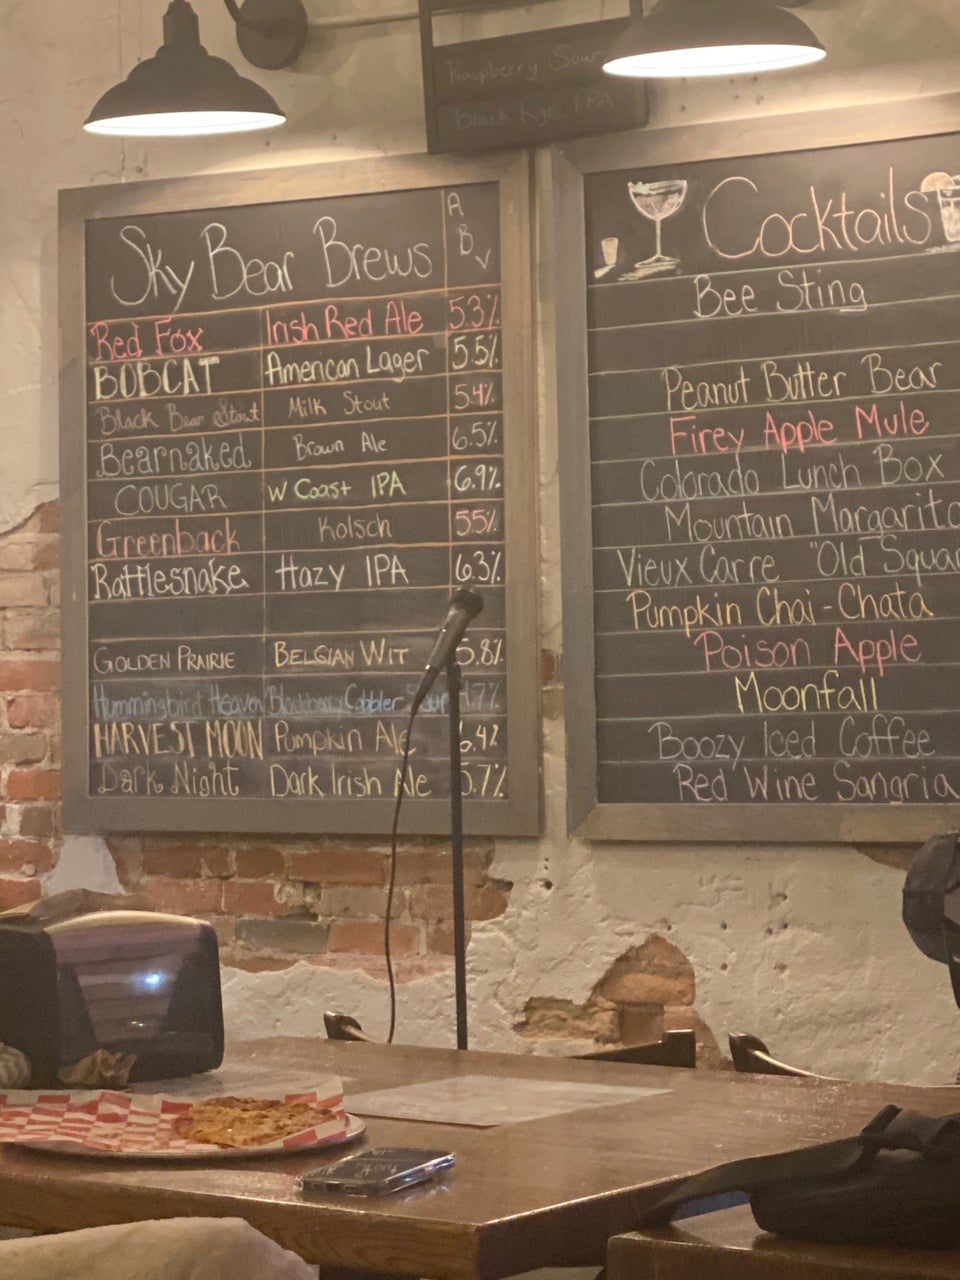 Raspberry Sour
Black Rye IPA
Sky Bear Brews ABV
Red Fox Irish Red Ale 5.3%
BOBCAT American Lager 5.5%
Black Bear Stout Milk Stout 5.4%
Bearnaked Brown Ale 6.5%
COUGAR W Coast IPA 6.9%
Greenback Kolsch 55%
Rattlesnake Hazy IPA 6.3%
GOLDEN PRAIRIE BELGIAN WIT 5.8%
Hummingbird Heaven Blackberry Cobbler 4.7%
HARVEST MOON Pumpkin Ale 6.4%
Dark Night Dark Irish Ale 5.7%
Cocktails
Bee Sting
Peanut Butter Bear
Firey Apple Mule
Colorado Lunch Box
Mountain Margarita
Vieux Carre "Old Squa
Pumpkin Chai-Chata
Poison Apple
Moonfall
Boozy Iced Coffee
Red Wine Sangria